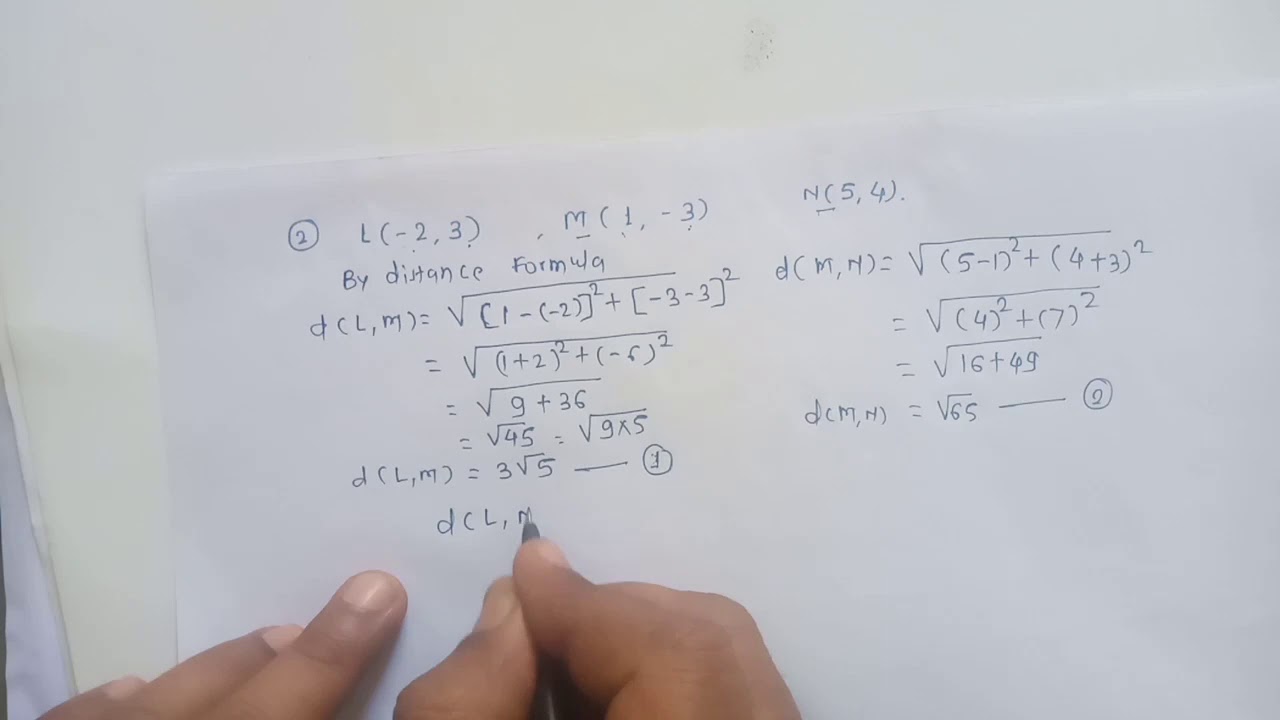 ② L(-2, 3) , M(1, -3) N(5, 4).
By distance Formula
d(L,M) = √[1-(-2)]²+[-3-3]²
= √(1+2)²+(-6)²
= √9+36
= √45 = √9×5
d(L,M) = 3√5 —— ①
d(L, M
d(M,N) = √(5-1)²+(4+3)²
= √(4)²+(7)²
= √16+49
d(M,N) = √65 —— ②